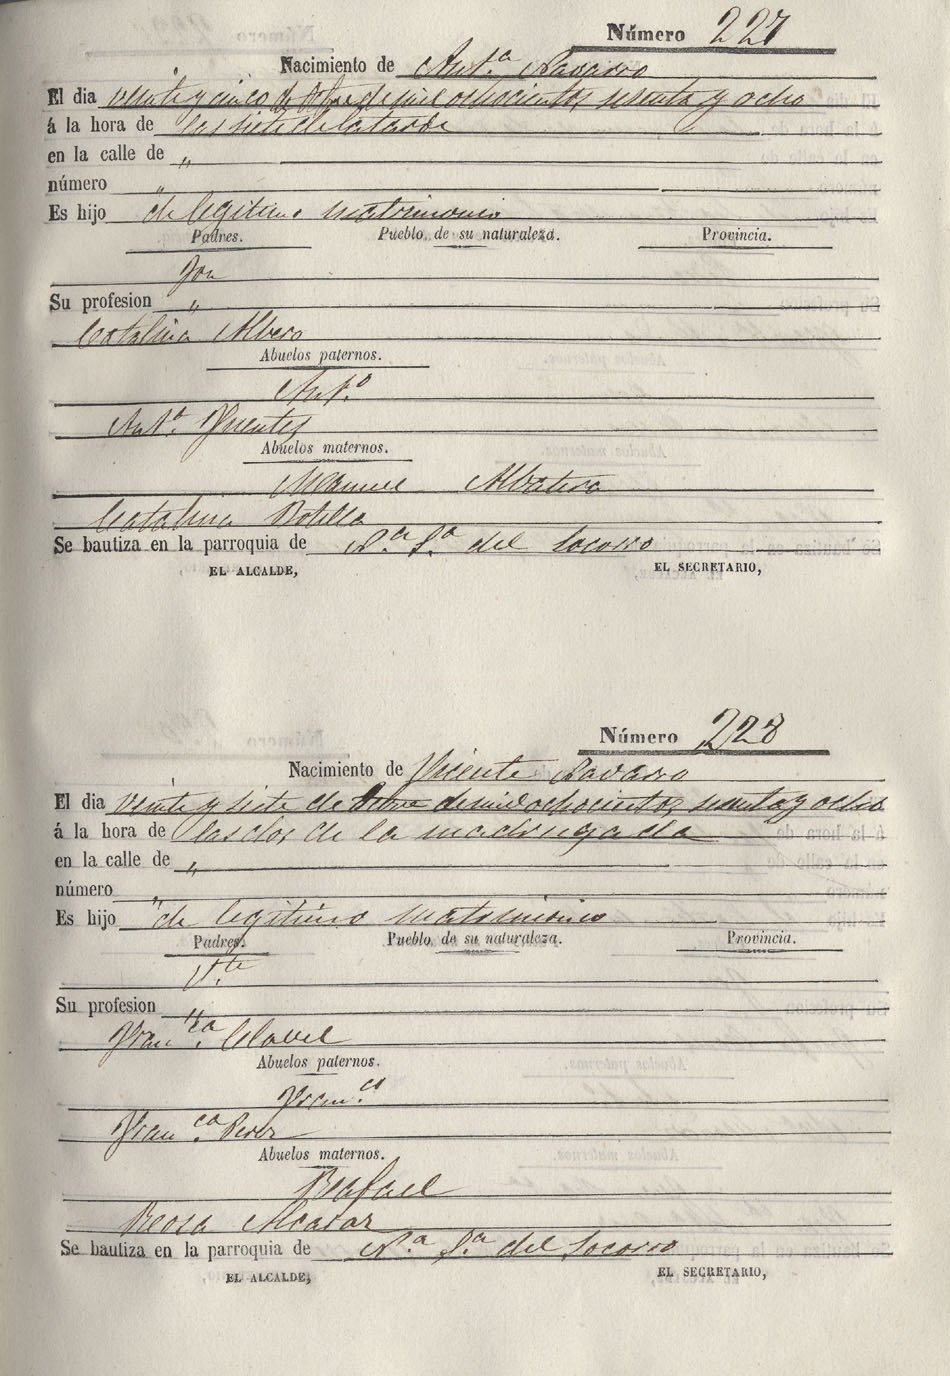 Número 227
Nacimiento de Ant.ª Navarro
El dia veinte y cinco de de mil ochocientos sesenta y ocho
á la hora de las siete de la tarde
en la calle de "
número "
Es hijo de legitimo matrimonio
Padres. Pueblo de su naturaleza. Provincia.
Su profesion "
Catalina Albero
Abuelos paternos.
Ant.º
Ant.ª Fuentes
Abuelos maternos.
Manuel
Catalina Botella
Se bautiza en la parroquia de N.ª S.ª del Socorro
EL ALCALDE, EL SECRETARIO,
Número 228
Nacimiento de Vicente Navarro
El dia veinte y siete de de mil ochocientos sesenta y ocho
á la hora de las dos de la madrugada
en la calle de "
número "
Es hijo de legitimo matrimonio
Padres. Pueblo de su naturaleza. Provincia.
V.te
Su profesion "
Fran.ca Clavel
Abuelos paternos.
Fran.co
Fran.ca Perez
Abuelos maternos.
Rafael
Rosa Alcaraz
Se bautiza en la parroquia de N.ª S.ª del Socorro
EL ALCALDE, EL SECRETARIO,